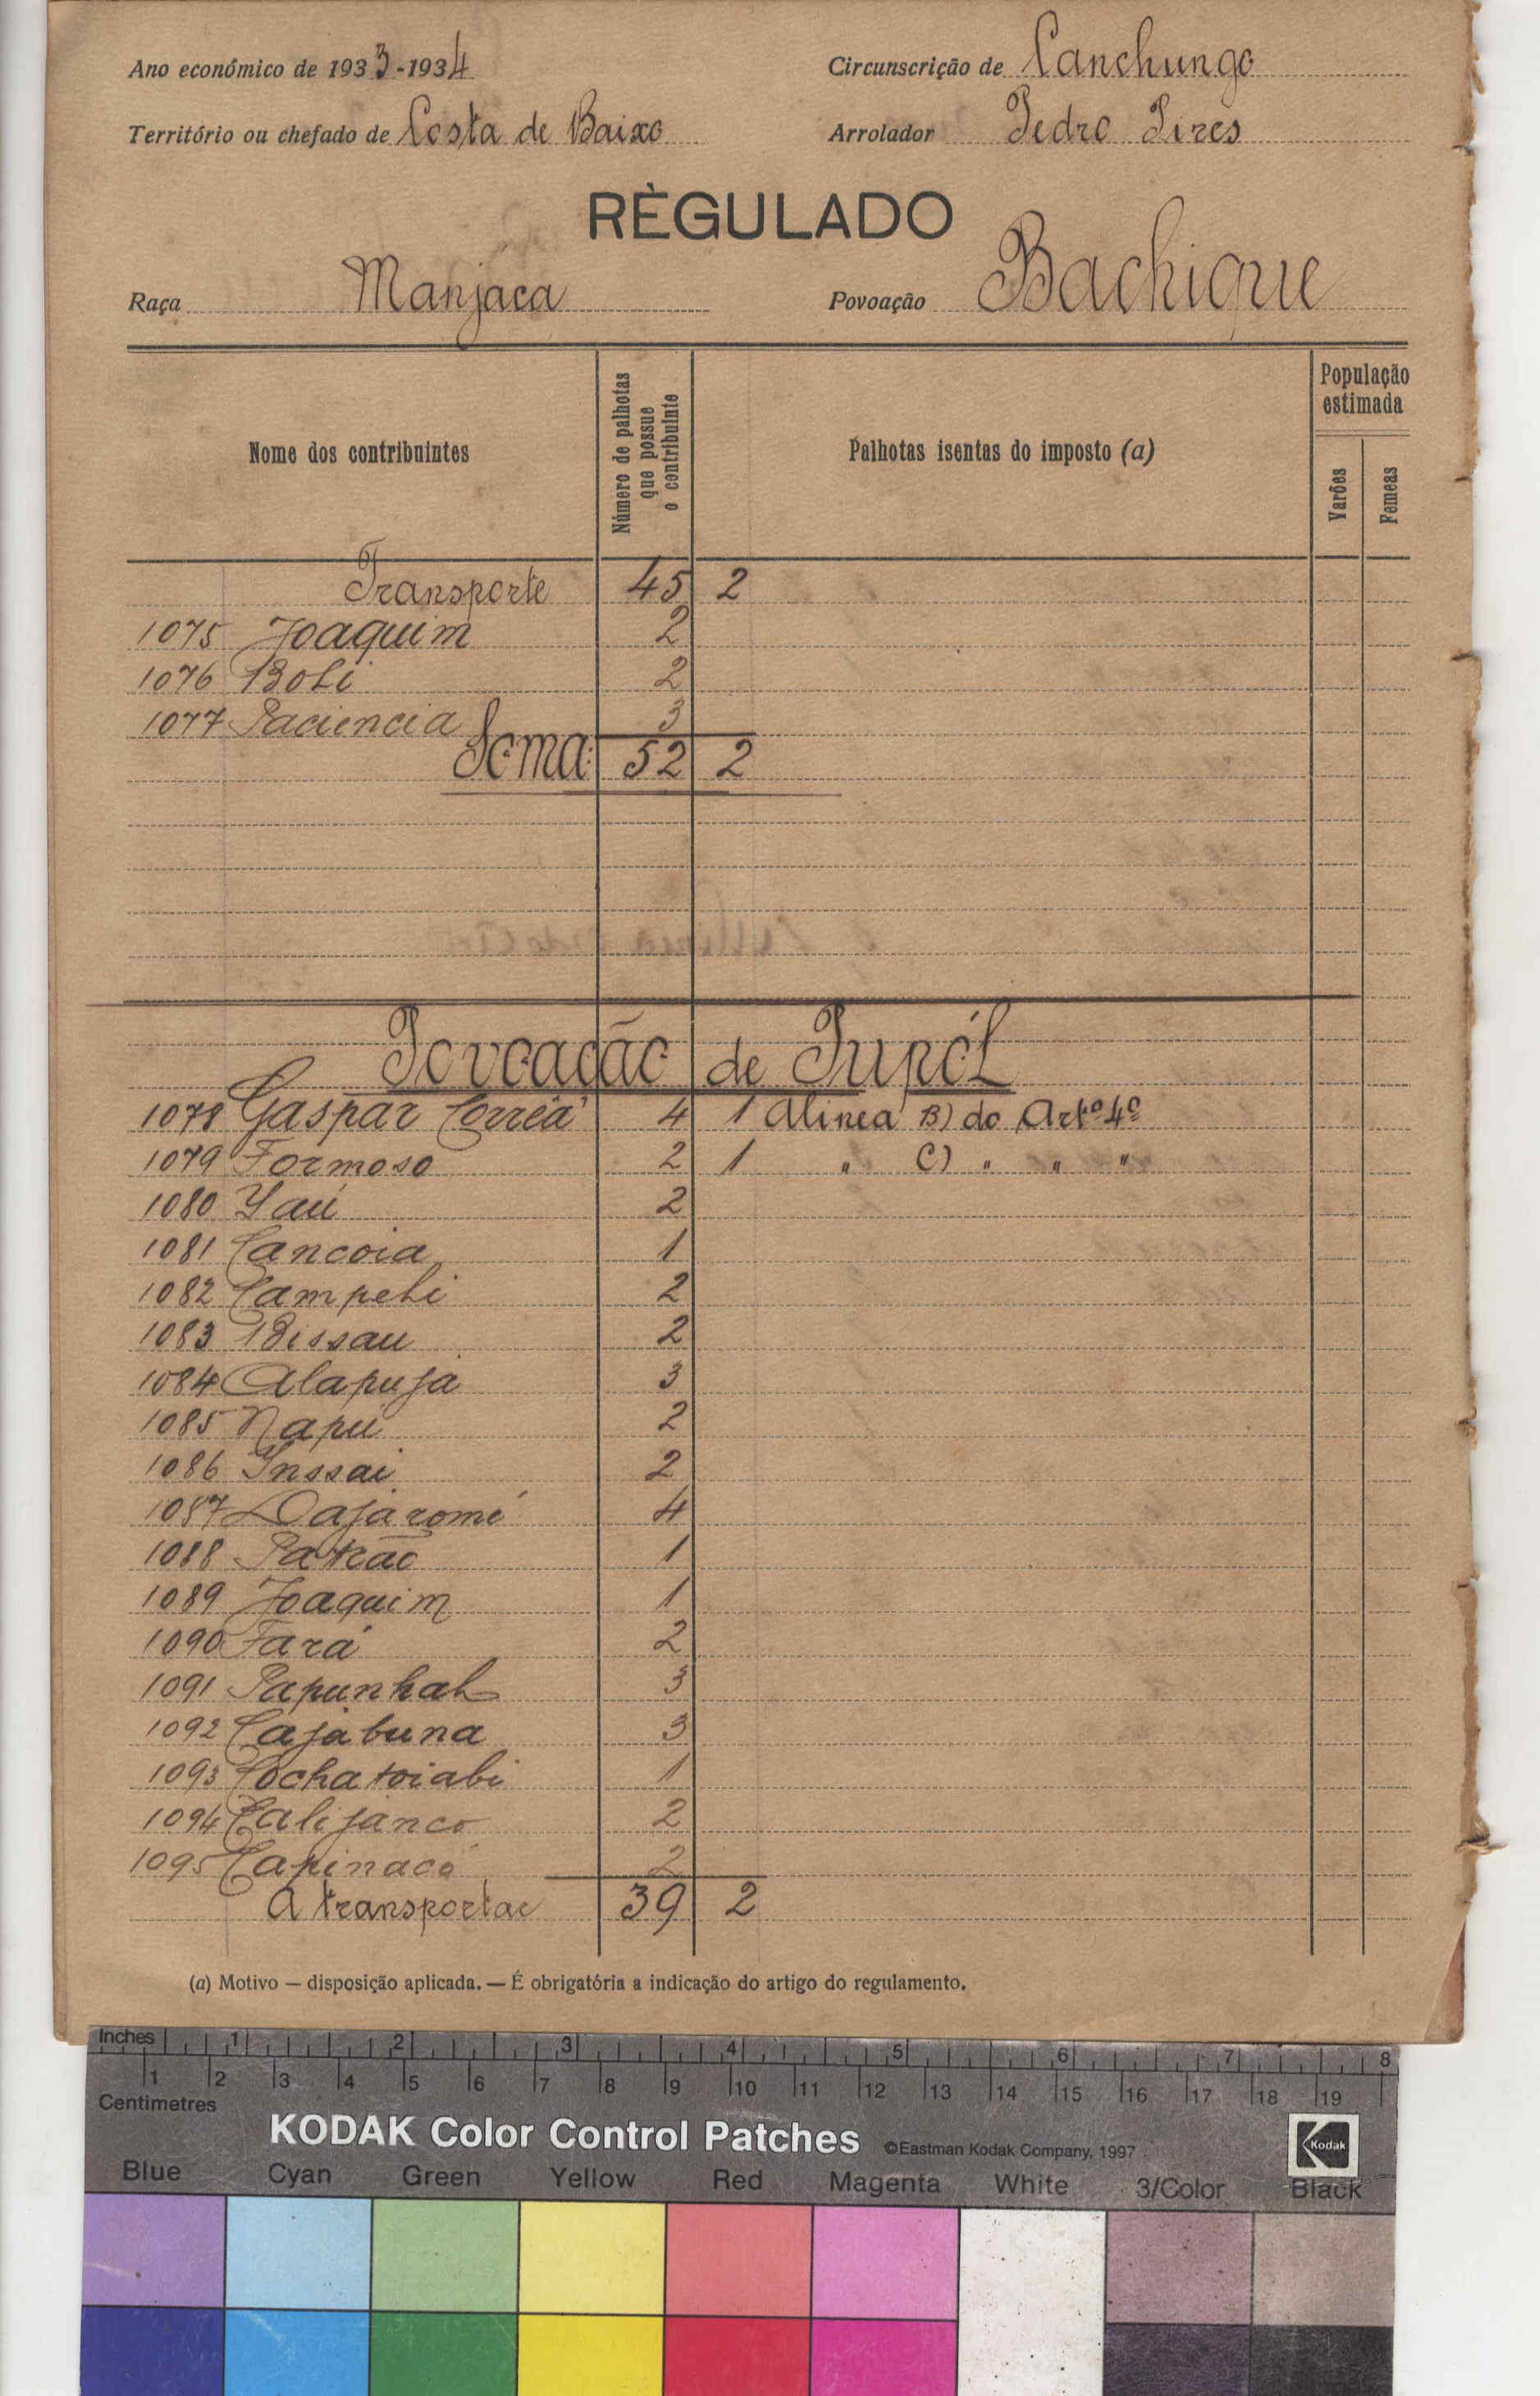 Ano económico de 1933-1934 Circunscrição de Canchungo
Território ou chefado de Costa de Baixo Arrolador Pedro Pires
RÈGULADO
Raça Manjaca Povoação Bachique
Nome dos contribuintes
Número de palhotas que possue o contribuinte
Palhotas isentas do imposto (a)
População estimada
Varões Femeas
Transporte 45 2
1075 Joaquim 2
1076 Boli 2
1077 Paciencia 3
Soma: 52 2
Povoação de Pupól
1078 Gaspar Corrêa 4 1 Alinea B) do Artº 4º
1079 Formoso 2 1 " C) " " "
1080 Yaú 2
1081 Cancoia 1
1082 Campeli 2
1083 Bissau 2
1084 Alapuja 3
1085 Napú 2
1086 Inssai 2
1087 Dajaromé 4
1088 Patrão 1
1089 Joaquim 1
1090 Fará 2
1091 Papunhal 3
1092 Cajabuna 3
1093 Cochatoiabi 1
1094 Calijanco 2
1095 Capinacó 2
A transportar 39 2
(a) Motivo — disposição aplicada. — É obrigatória a indicação do artigo do regulamento.
Inches 1 2 3 4 5 6 7 8
1 2 3 4 5 6 7 8 9 10 11 12 13 14 15 16 17 18 19
Centimetres
KODAK Color Control Patches ©Eastman Kodak Company, 1997 Kodak
Blue Cyan Green Yellow Red Magenta White 3/Color Black